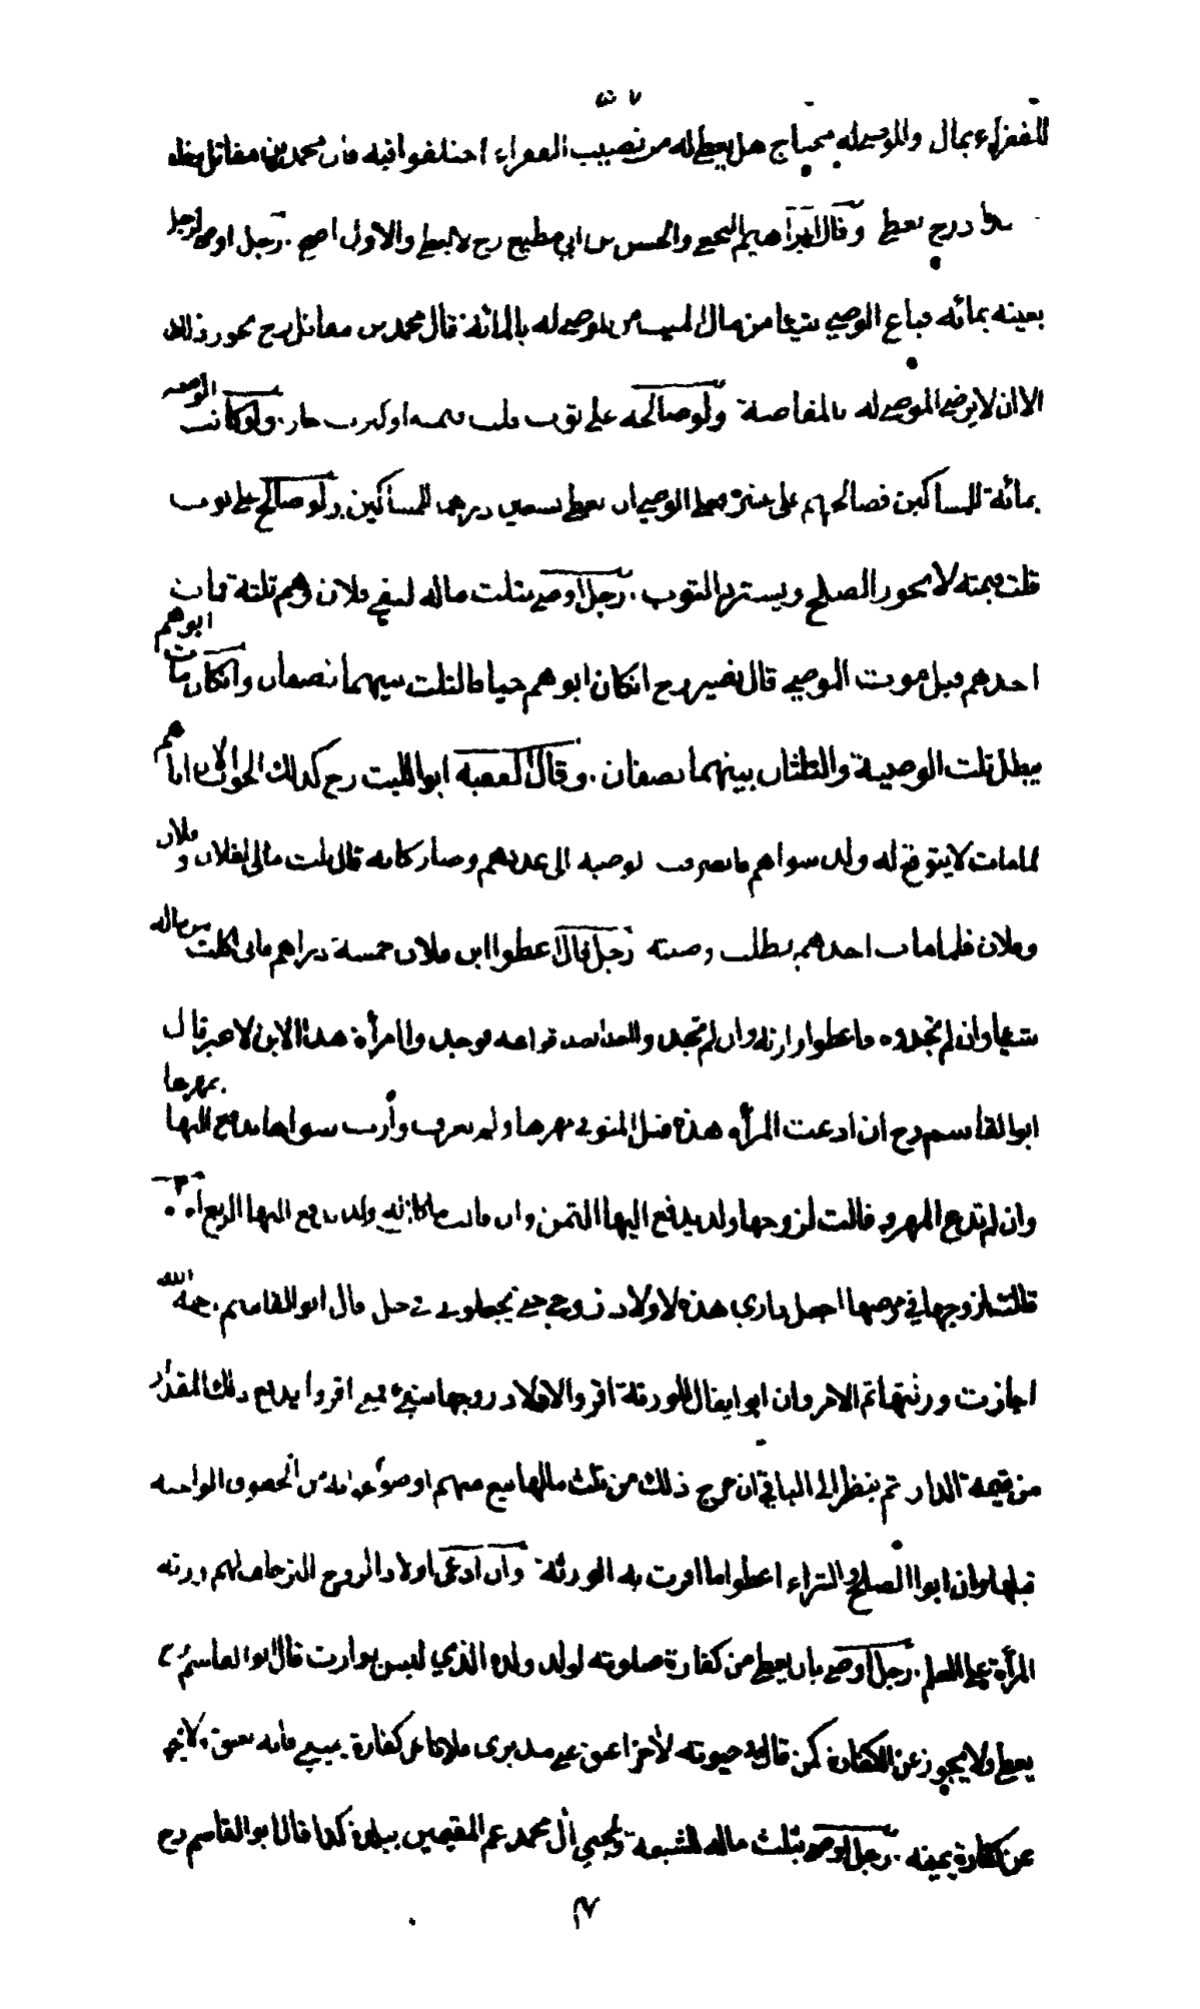 للفقراء بمال والموصى له محتاج هل يعطى له من نصيب الفقراء اختلفوا فيه قال محمد بن مقاتل
درح يعطى وقال ابراهيم النخعي والحسن بن ابي مطيع رح لا يعطى والاول اصح . رجل اوصى لرجل
بعينه بمائه فباع الوصي شيئا من مال الميت من الموصى له بالمائة قال محمد بن مقاتل رح يجوز ذلك
الا ان لا يرضى الموصى له بالمقاصة ولو صالحه على ثوب قلت قيمته او كثرت جاز . ولو كانت الوصية
بمائة للمساكين فصالحهم على عشرة الوصي ان يعطى تسعين درهما للمساكين ولو صالح على ثوب
قلت قيمته لا يجوز الصلح ويسترد الثوب . رجل اوصى بثلث ماله لبني فلان وهم ثلثة فمات
احدهم قبل موت الموصي قال نصير رح ان كان ابوهم حيا فالثلث بينهما نصفان وان كان مات ابوهم
يبطل ثلث الوصية والثلثان بينهما نصفان . وقال الفقيه ابو الليث رح كذلك الجواب لان اباهم
لما مات لا يتوقع له ولد سواهم فانصرفت الوصية الى عددهم وصار كانه قال ثلث مالى لفلان وفلان
وفلان فلما مات احدهم بطلت وصيته رجل قال اعطوا ابن فلان خمسة دراهم فانى اكلت من ماله
شيئا وان لم تجدوه فاعطوا وارثه وان لم تجد فوجد والمرأة هذا الابن لا غير قال
ابو القاسم رح ان ادعت المرأة هذه قبل المتوفى مهرها ولم يعرف وارث سواها يدفع اليها مهرها .
وان لم تدع المهر فان قالت لزوجها ولد يدفع اليها الثمن وان قالت ما كان له ولد يدفع اليها الربع امرأة
قالت لزوجها في مرضها اجعل داري هذه لاولاد زوجي حتى يجعلوني في حل قال ابو القاسم رحمه الله
اجازت ورثتها تم الامر وان ابوا يقال للورثة اقروا لاولاد زوجها بشيء فمتى اقروا يدفع ذلك المقدار
من قيمة الدار ثم ينظر الى الباقي ان خرج ذلك من ثلث مالها من الحقوق الواجبة
قبلها وان ابوا الصلح والشراء اعطوا ما اقرت به الورثة وان ادعى اولاد الزوج ورثة
المرأة على العلم . رجل اوصى بان يعطى من كفارة صلوته لولد ولده الذي ليس بوارث قال ابو القاسم رح
يعطى ولا يجوز عن الكفارة كمن قال في حيوته لآخر اعتق عنى مدبرى فلانا عن كفارة يمينى فانه يعتق ولا يجوز
عن كفارة يمينه . رجل اوصى بثلث ماله للشيعة ولمحبي آل محمد عم المقيمين ببلدة كذا قال ابو القاسم رح